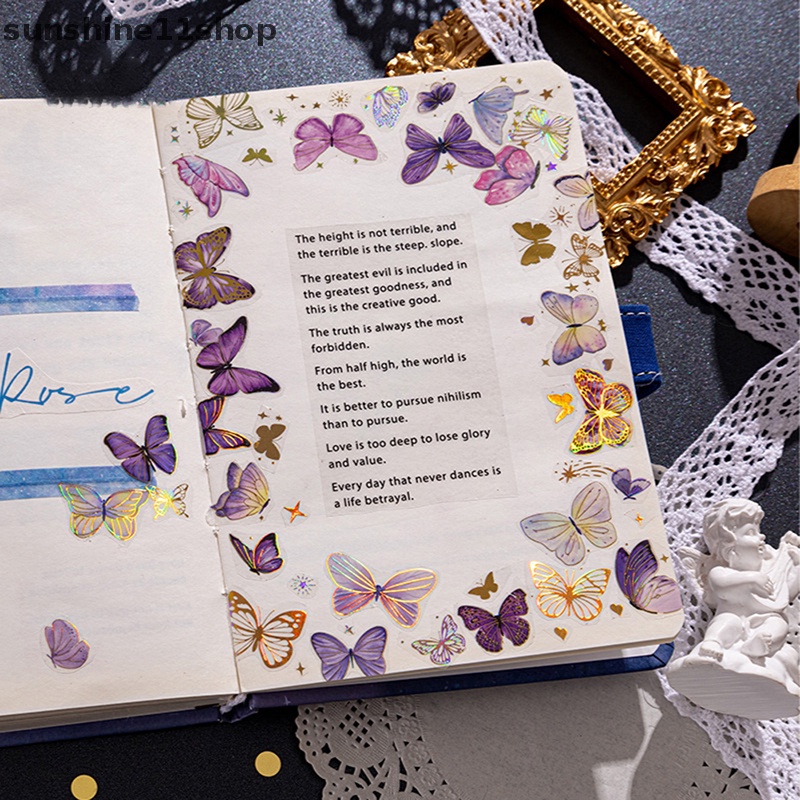 sunshine11shop
Rose
The height is not terrible, and
the terrible is the steep. slope.
The greatest evil is included in
the greatest goodness, and
this is the creative good.
The truth is always the most
forbidden.
From half high, the world is
the best.
It is better to pursue nihilism
than to pursue.
Love is too deep to lose glory
and value.
Every day that never dances is
a life betrayal.